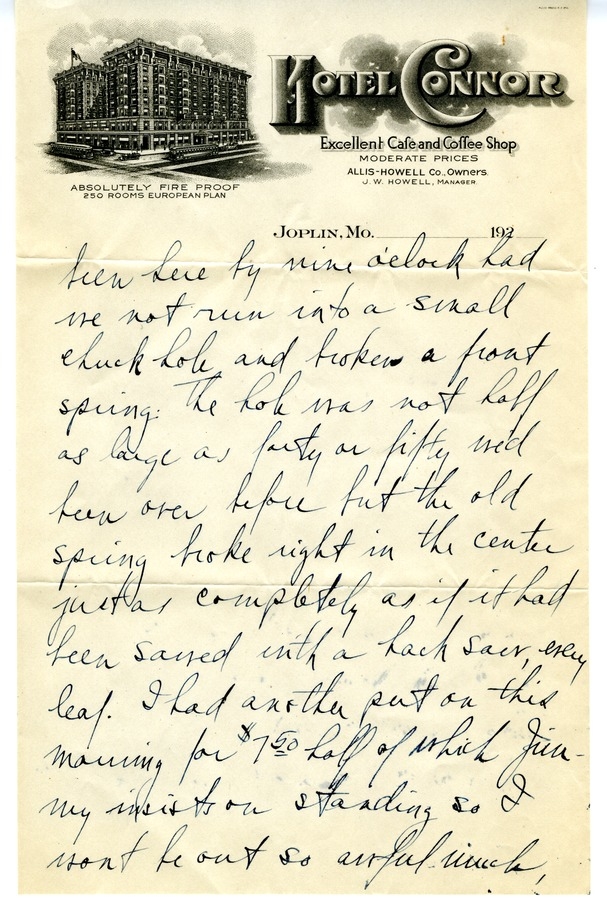 HOTEL CONNOR
Excellent Cafe and Coffee Shop
MODERATE PRICES
ALLIS-HOWELL CO., OWNERS.
J. W. HOWELL, MANAGER.
ABSOLUTELY FIRE PROOF
250 ROOMS EUROPEAN PLAN
JOPLIN, MO. 192
been here by nine o'clock had
we not run into a small
chuck hole and broken a front
spring. The hole was not half
as large as forty or fifty we'd
been over before but the old
spring broke right in the center
just as completely as if it had
been sawed with a hack saw, every
leaf. I had another put on this
morning for $7.50 half of which Jim-
my insists on standing so I
wont be out so awful much,